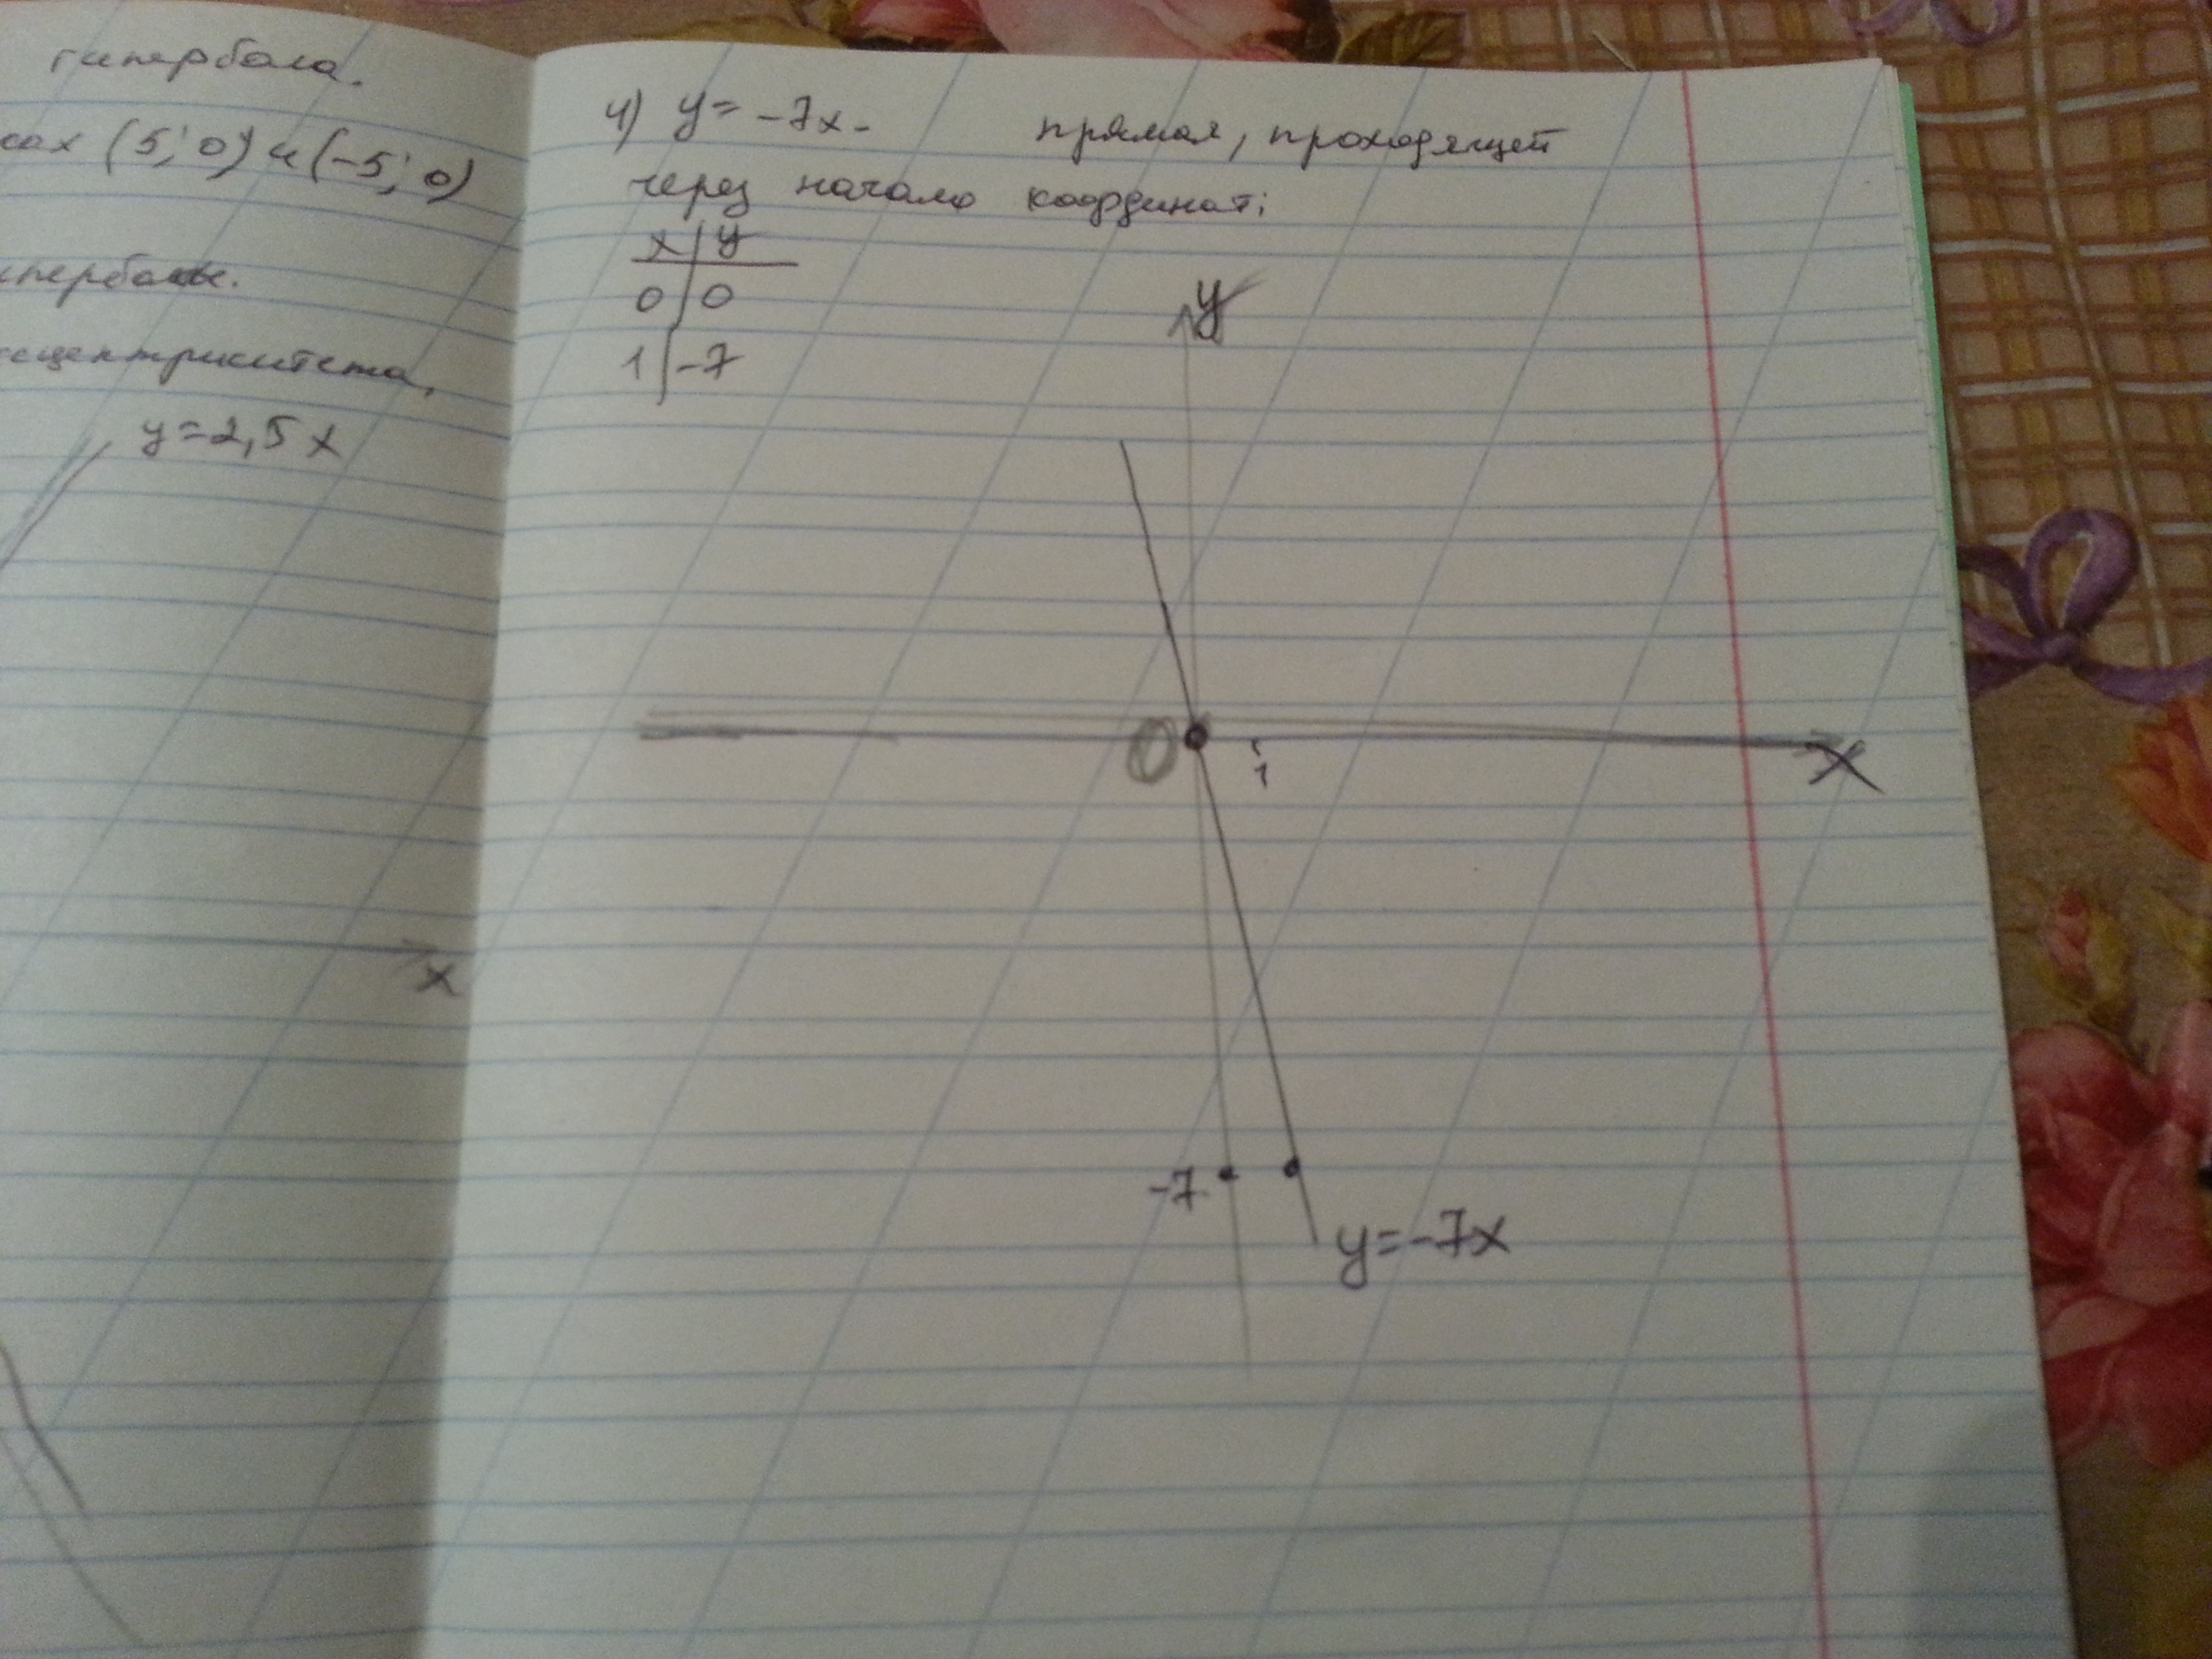 гипербола.
(5; 0) и (-5; 0)
y=2,5x
x
4) y = -7x - прямая, проходящей
через начало координат:
x | y
0 | 0
1 | -7
y
0
1
x
-7
y=-7x